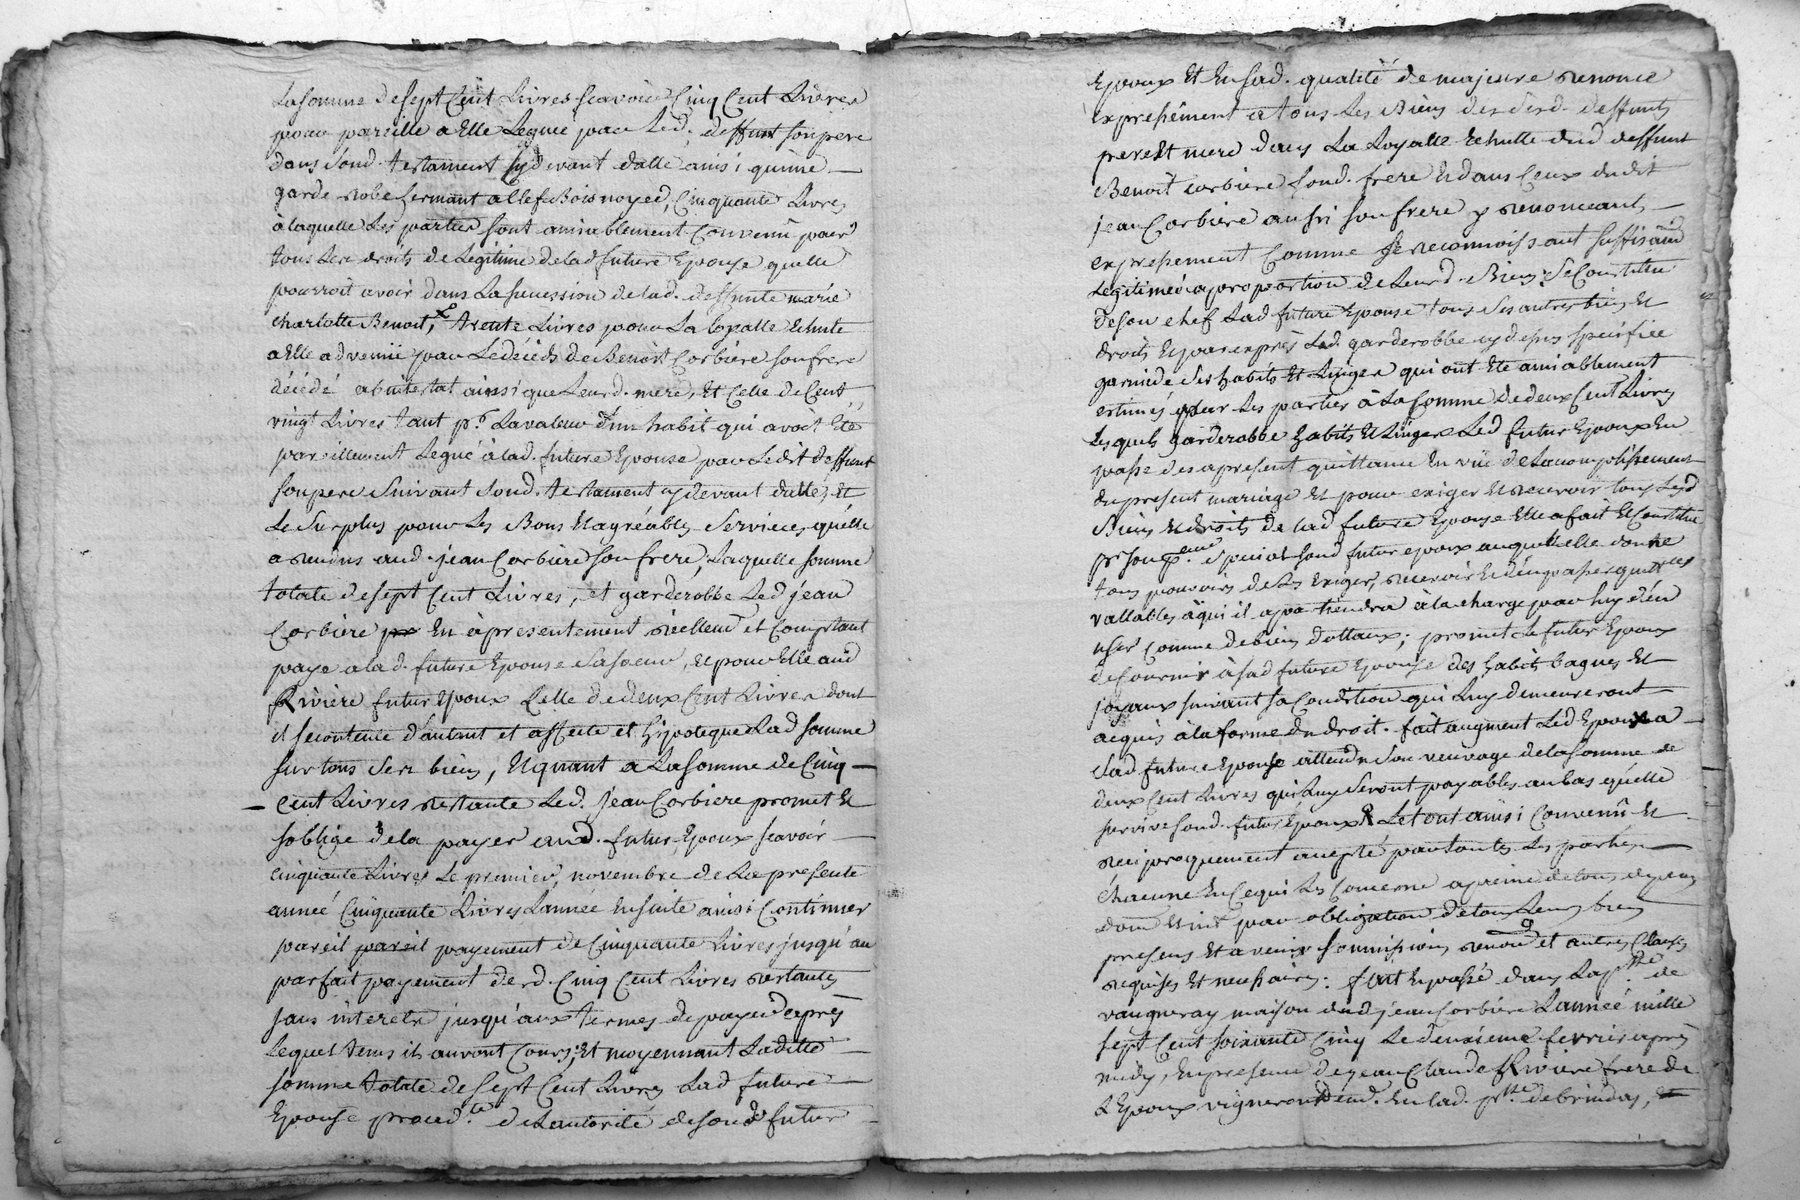 La somme de sept Cent Livres scavoir Cinq Cent Livres
pour pareille a Elle Leguée par Led. deffunt son pere
dans sond. testament cydevant datté ainsi qu'une
garde robe fermant a Clef Bois noyer, Cinquante Livres
à laquelle Les parties sont amiablement Convenü pour
tous Les droits de Legitime de lad future Epouse quelle
pourroit avoir dans La sucession de lad. deffunte marie
charlotte Benoit, trente Livres pour La Loyalle Echute
a Elle advenüe par Le décéds de Benoit Corbiere son frere
décédé abintestat ainsi que Leurd. mere, Et Celle de Cent
vingt Livres tant pr. La valeur d'un habit qui avoit Eté
pareillement Legué à lad. future Epouse par Ledit deffunt
son pere Suivant Sond. testament cydevant datté, Et
Le Surplus pour Les Bons Et agréables Services qu'elle
a rendus aud. jean Corbiere son frere, Laquelle somme
totale de sept Cent Livres, et garderobbe Led jean
Corbiere En à presentement réellemt et Comptant
payé a lad. future Epouse Sa soeur, Et pour Elle aud
Rivière futur Epoux Celle de deux Cent Livres dont
il se contente d'autant et affecte et hipoteque Lad somme
sur tous Ses biens, Et quant a La somme de Cinq
Cent Livres restante Led. jean Corbiere promet Et
s'oblige de la payer aud. futur Epoux scavoir
cinquante Livres Le premier novembre de La presente
année Cinquante Livres Lannée Ensuite ainsi Continuer
pareil pareil payement de Cinquante Livres jusqu'au
parfait payement desd. Cinq Cent Livres restantes
sans intérêts jusqu'aux termes de payer après
Lequel tems ils auront Cours; Et moyennant Laditte
somme totale de Sept Cent Livres Lad future
Epouse proced.te de Lautorité de sond futur
Epoux Et En sad. qualité de majeure renonce
expressément a tous Les Biens des Sesd. deffunts
pere Et mere dans La Loyalle Echutte dud deffunt
Benoit Corbiere Sond. frere Et dans Ceux dudit
jean Corbiere aussi son frere y renonceant
expressement Comme Se reconnoissant suffisamt
Legitimée a proportion de Leurd. Biens, Se Constitue
de son chef Lad future Epouse tous Ses autres biens Et
droits Et par exprès Lad. garderobbe cy dessus specifiée
garnie de Ses habits Et Linges qui ont Eté amiablement
estimés par Les parties à La somme de deux Cent Livres
Lesquels garderobbe habits Et Linges Led futur Epoux En
passe des apresent quittance En vüe de Lacomplissement
du present mariage Et pour exiger Et recevoir tous Lesd
Biens Et droits de Lad future Epouse Elle a fait Et Constitué
pr son Special Sond futur epoux auquel elle donne
tous pouvoirs de Les exiger, recevoir Et d'en passer quittces
vallables à qui il apartiendra à la charge par Luy d'en
user Comme de biens dottaux; promet Le futur Epoux
de fournir à sad future Epouse des habits bagues Et
joyaux suivant sa Condition qui Luy demeureront
acquis à la forme du droit. fait augment Led Epoux a
Sad. future Epouse attendu Son veuvage de la Somme de
deux Cent Livres qui Luy Seront payables au Cas qu'elle
survive sond. futur Epoux & Le tout ainsi Convenü Et
reciproquement accepté par toutes Les parties
chacune En Ce qui Les Concerne a peine de tous depens
dom Et int par obligation de tous Leurs biens
presens Et a venir soumissions renond et autres Clauses
requises Et necessaires: fait Et passé dans La psse de
vaugneray maison dud jean Corbiere L'année mille
sept Cent soixante Cinq Le deuxieme fevrier après
midy, En presence de jean Claude Rivière frere de
L Epoux vigneron demt. En lad. psse de brindas, Et